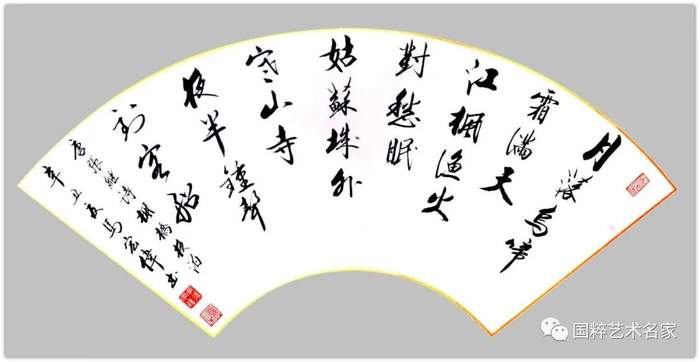 月落烏啼
霜滿天
江楓漁火
對愁眠
姑蘇城外
寒山寺
夜半鐘聲
到客船
唐張继诗楓橋夜泊
辛丑夏馬宏偉书
国粹艺术名家